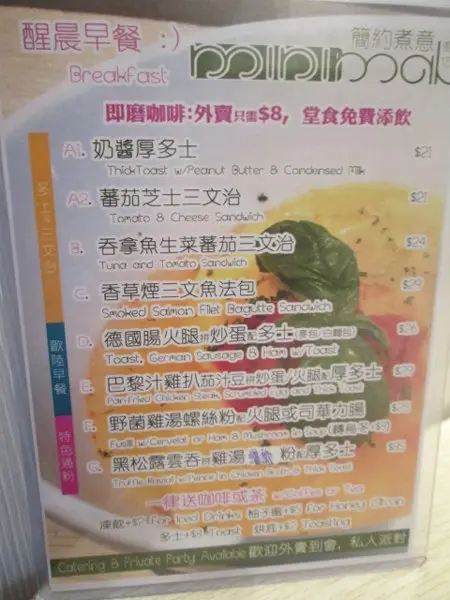 醒晨早餐 :)
Breakfast
簡約煮意
minimal
即磨咖啡:外賣只需$8, 堂食免費添飲
多士三文治
A1. 奶醬厚多士 $21
ThickToast w/Peanut Butter & Condensed Milk
A2. 蕃茄芝士三文治 $21
Tomato & Cheese Sandwich
B. 吞拿魚生菜蕃茄三文治 $24
Tuna and Tomato Sandwich
C. 香草煙三文魚法包 $29
Smoked Salmon Filet Bagutte Sandwich
歐陸早餐
D. 德國腸火腿拼炒蛋配多士(麥包/白麵包) $26
Toast, German Sausage & Ham w/Toast
E. 巴黎汁雞扒茄汁豆拼炒蛋/火腿配厚多士 $29
Pan-fried Chicken Steak, Scrambled Egg and Thick Toast
特色湯粉
F. 野菌雞湯螺絲粉配火腿或司華力腸 $28
Fusilli w/Cervelat or Ham & Mushroom in Soup (轉烏冬+$3)
G. 黑松露雲吞拼雞湯 配厚多士
Truffle Ravioli in Chicken & Thick Toast
一律送咖啡或茶 w/Coffee or Tea
凍飲+$ for Iced Drinks 柚子蜜+$ for Honey Citron
多士+$8 Toast 烘底+$ Toasting
Catering & Private Party Available 歡迎外賣到會, 私人派對